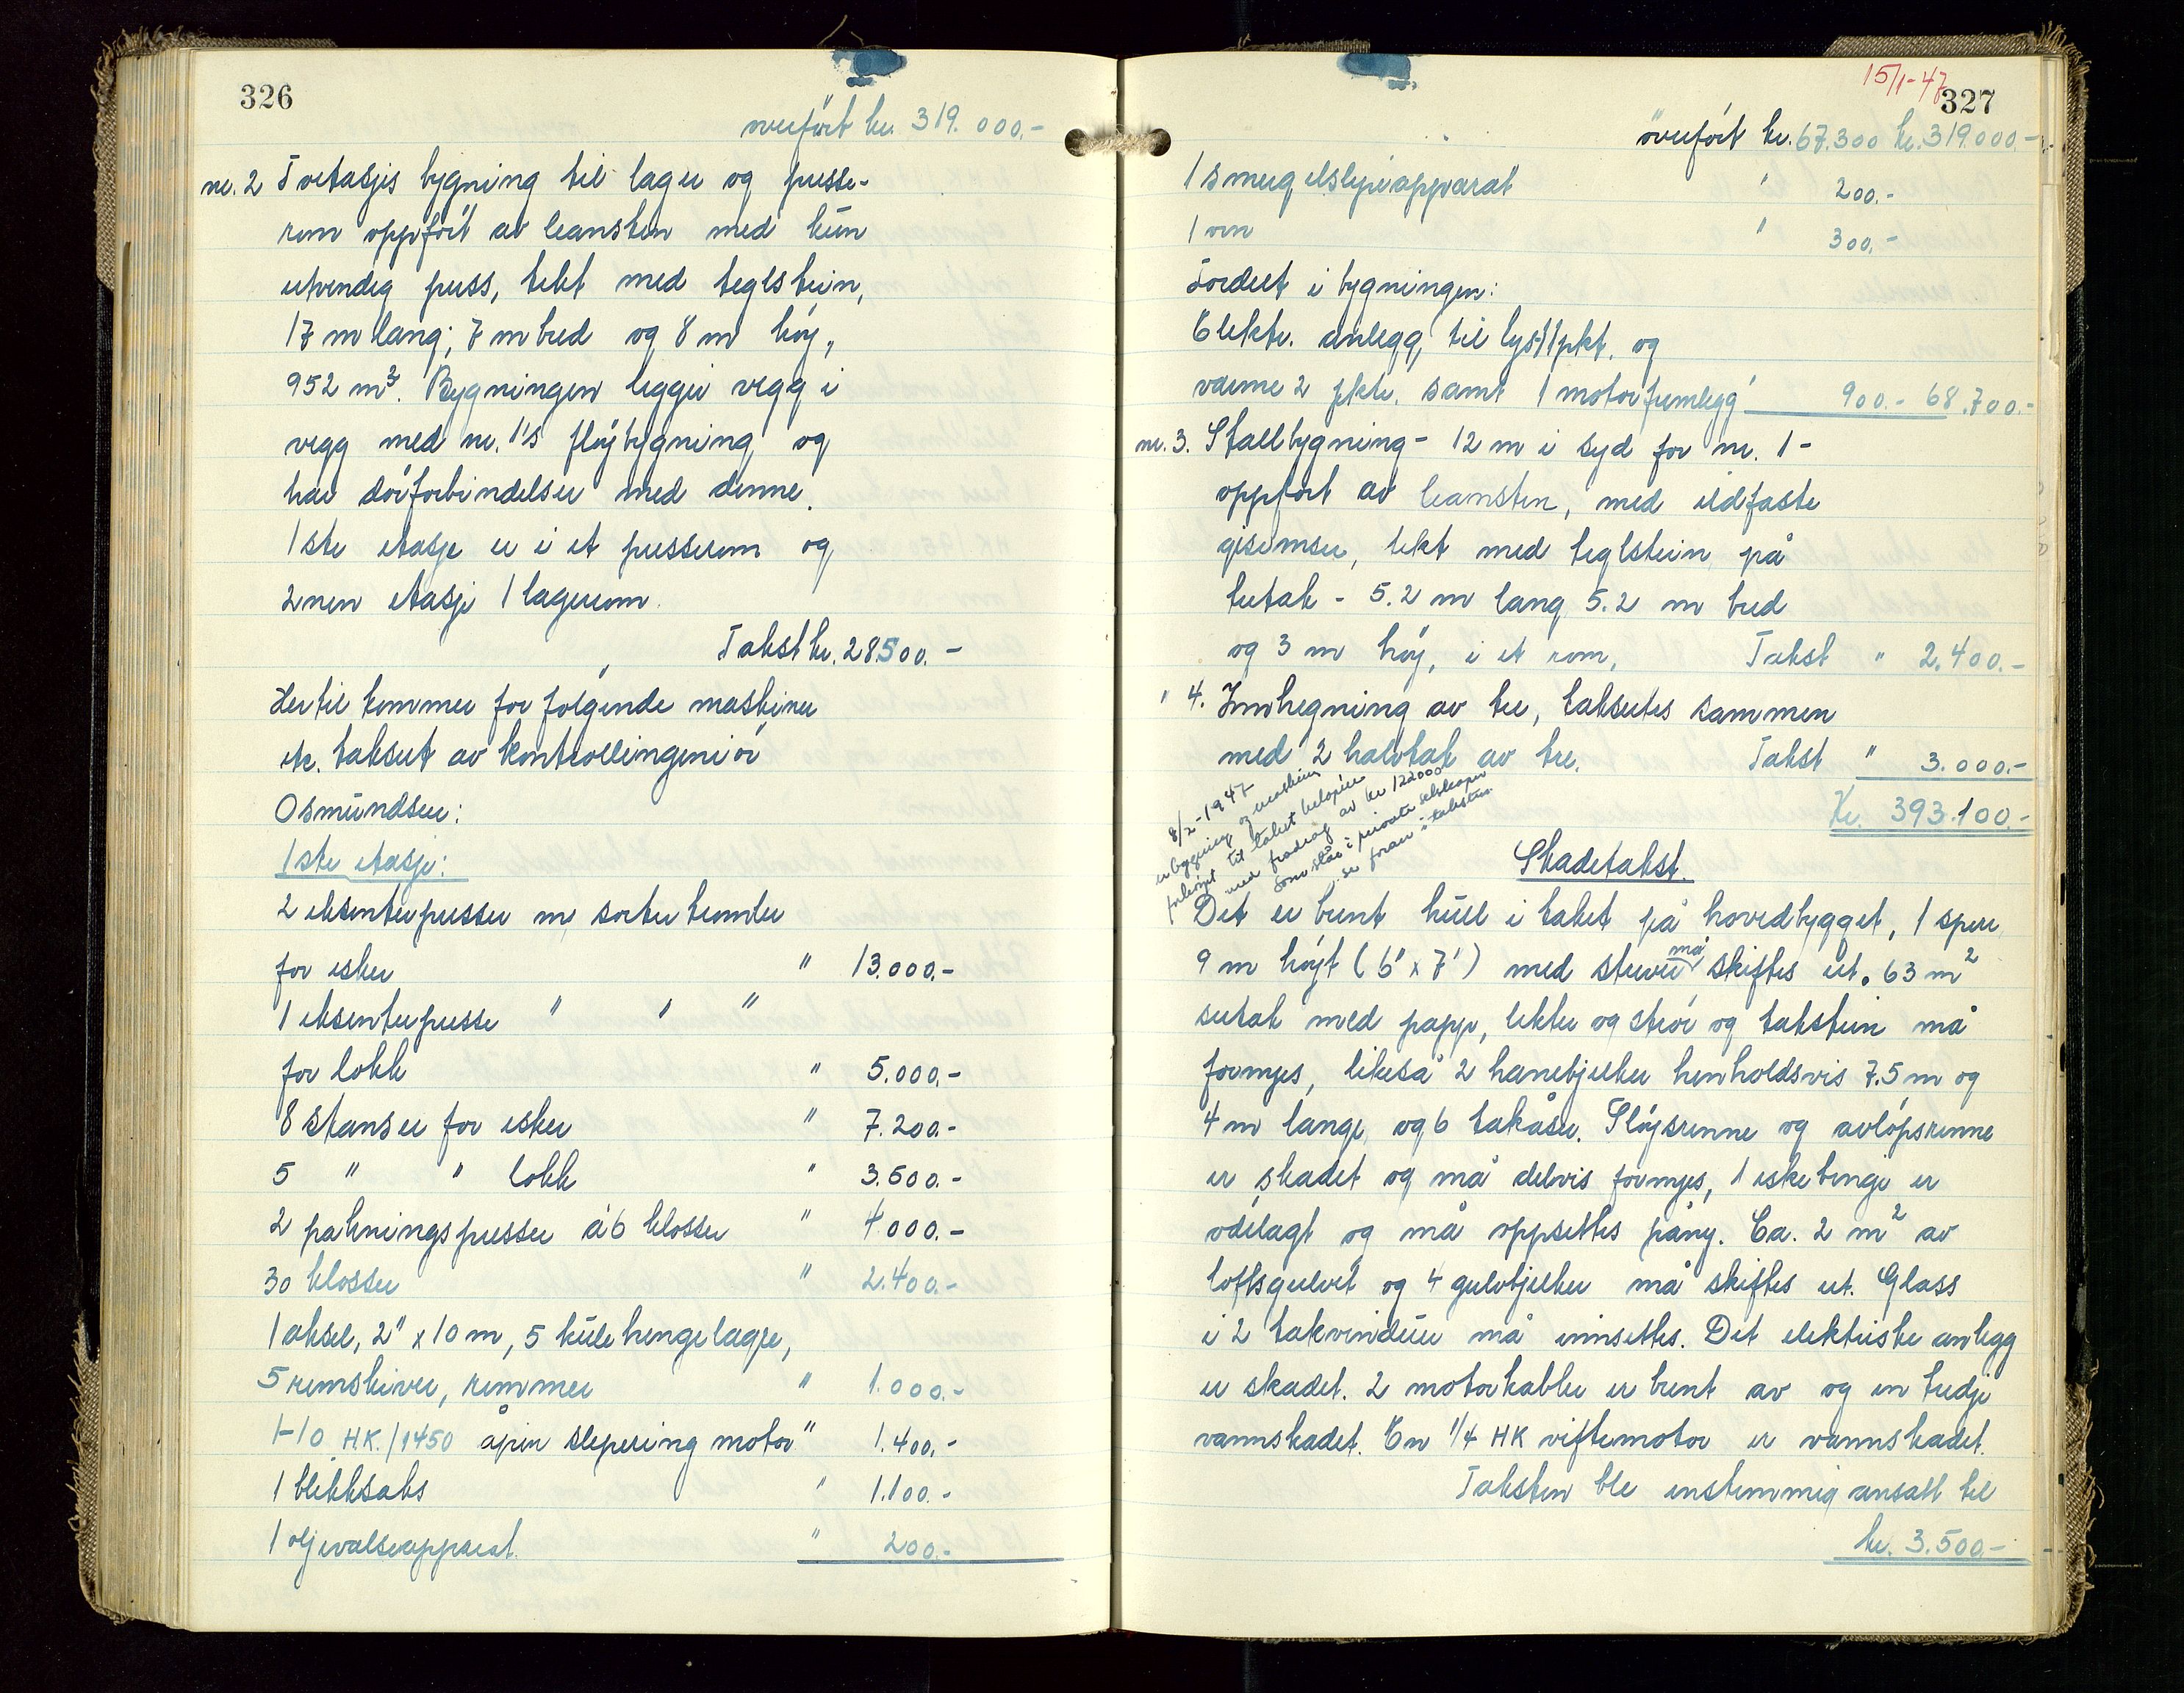 326
overført kr. 319.000.-
nr. 2 Toetasjes bygning til lager og presse-
rom oppført av leansten med kun
utvendig puss, tekt med teglstein,
17 m lang; 7 m bred og 8 m høy,
952 m3. Bygningen ligger vegg i
vegg med nr. 1's fløybygning og
har dørforbindelser med denne.
1ste etasje er i et presserom og
2nen etasje 1 lagerrom.
Takst kr. 28500.-
Hertil kommer for følgende maskiner
etc. taksert av kontrollingeniør
Osmundsen:
1ste etasje:
2 eksenterpresser m/ sorter tromler
for esker " 13.000.-
1 eksenterpresse " " "
for lokk " 5.000.-
8 stanser for esker " 7.200.-
5 " " lokk " 3.500.-
2 pakningspresser á 6 klosser " 4.000.-
30 klosser " 2.400.-
1 aksel, 2" x 10 m, 5 kule hengelagre,
5 remskiver, remmer " 1.000.-
1-10 HK./1450 åpen slepering motor " 1.400.-
1 blikksaks " 1.100.-
1 oljevalseapparat. " 200.-
15/1-47
327
overført kr. 67.300 kr. 319.000.-
1 smergelslipeapparat " 200.-
1 ovn " 300.-
Fordelt i bygningen:
Elektr. anlegg til lys 11 pkt. og
varme 2 pkte. samt 1 motorfremlegg " 900.- 68.700.-
nr. 3. Stallbygning - 12 m i syd for nr. 1 -
oppført av leansten, med ildfaste
gesimser, tekt med teglstein på
tretak - 5.2 m lang 5.2 m bred
og 3 m høy, i et rom, Takst " 2.400.-
" 4. Innhegning av tre, takseres sammen
med 2 halvtak av tre. Takst " 3.000.-
Kr. 393.100.-
8/2-1947
er bygning og maskin
forhøyet til takst beløpene
med fradrag av kr 122000
som står i private selskaper
se foran i taksten.
Skadetakst.
Det er brent hull i taket på hovedbygget, 1 sperre
9 m høyt (6" x 7") med stuver må skiftes ut. 63 m2
sutak med papp, lekter og strø og takstein må
fornyes, likeså 2 hanebjelker henholdsvis 7.5 m og
4 m lange og 6 takåser. Sløysrenne og avløpsrenne
er skadet og må delvis fornyes, 1 eske binge er
ødelagt og må oppsettes påny. Ca. 2 m2 av
loftsgulvet og 4 gulvbjelker må skiftes ut. Glass
i 2 takvinduer må innsettes. Det elektriske anlegg
er skadet. 2 motorkabler er brent av og en tredje
vannskadet. En 1/4 HK viftemotor er vannskadet.
Taksten ble enstemmig ansatt til
kr. 3.500.-